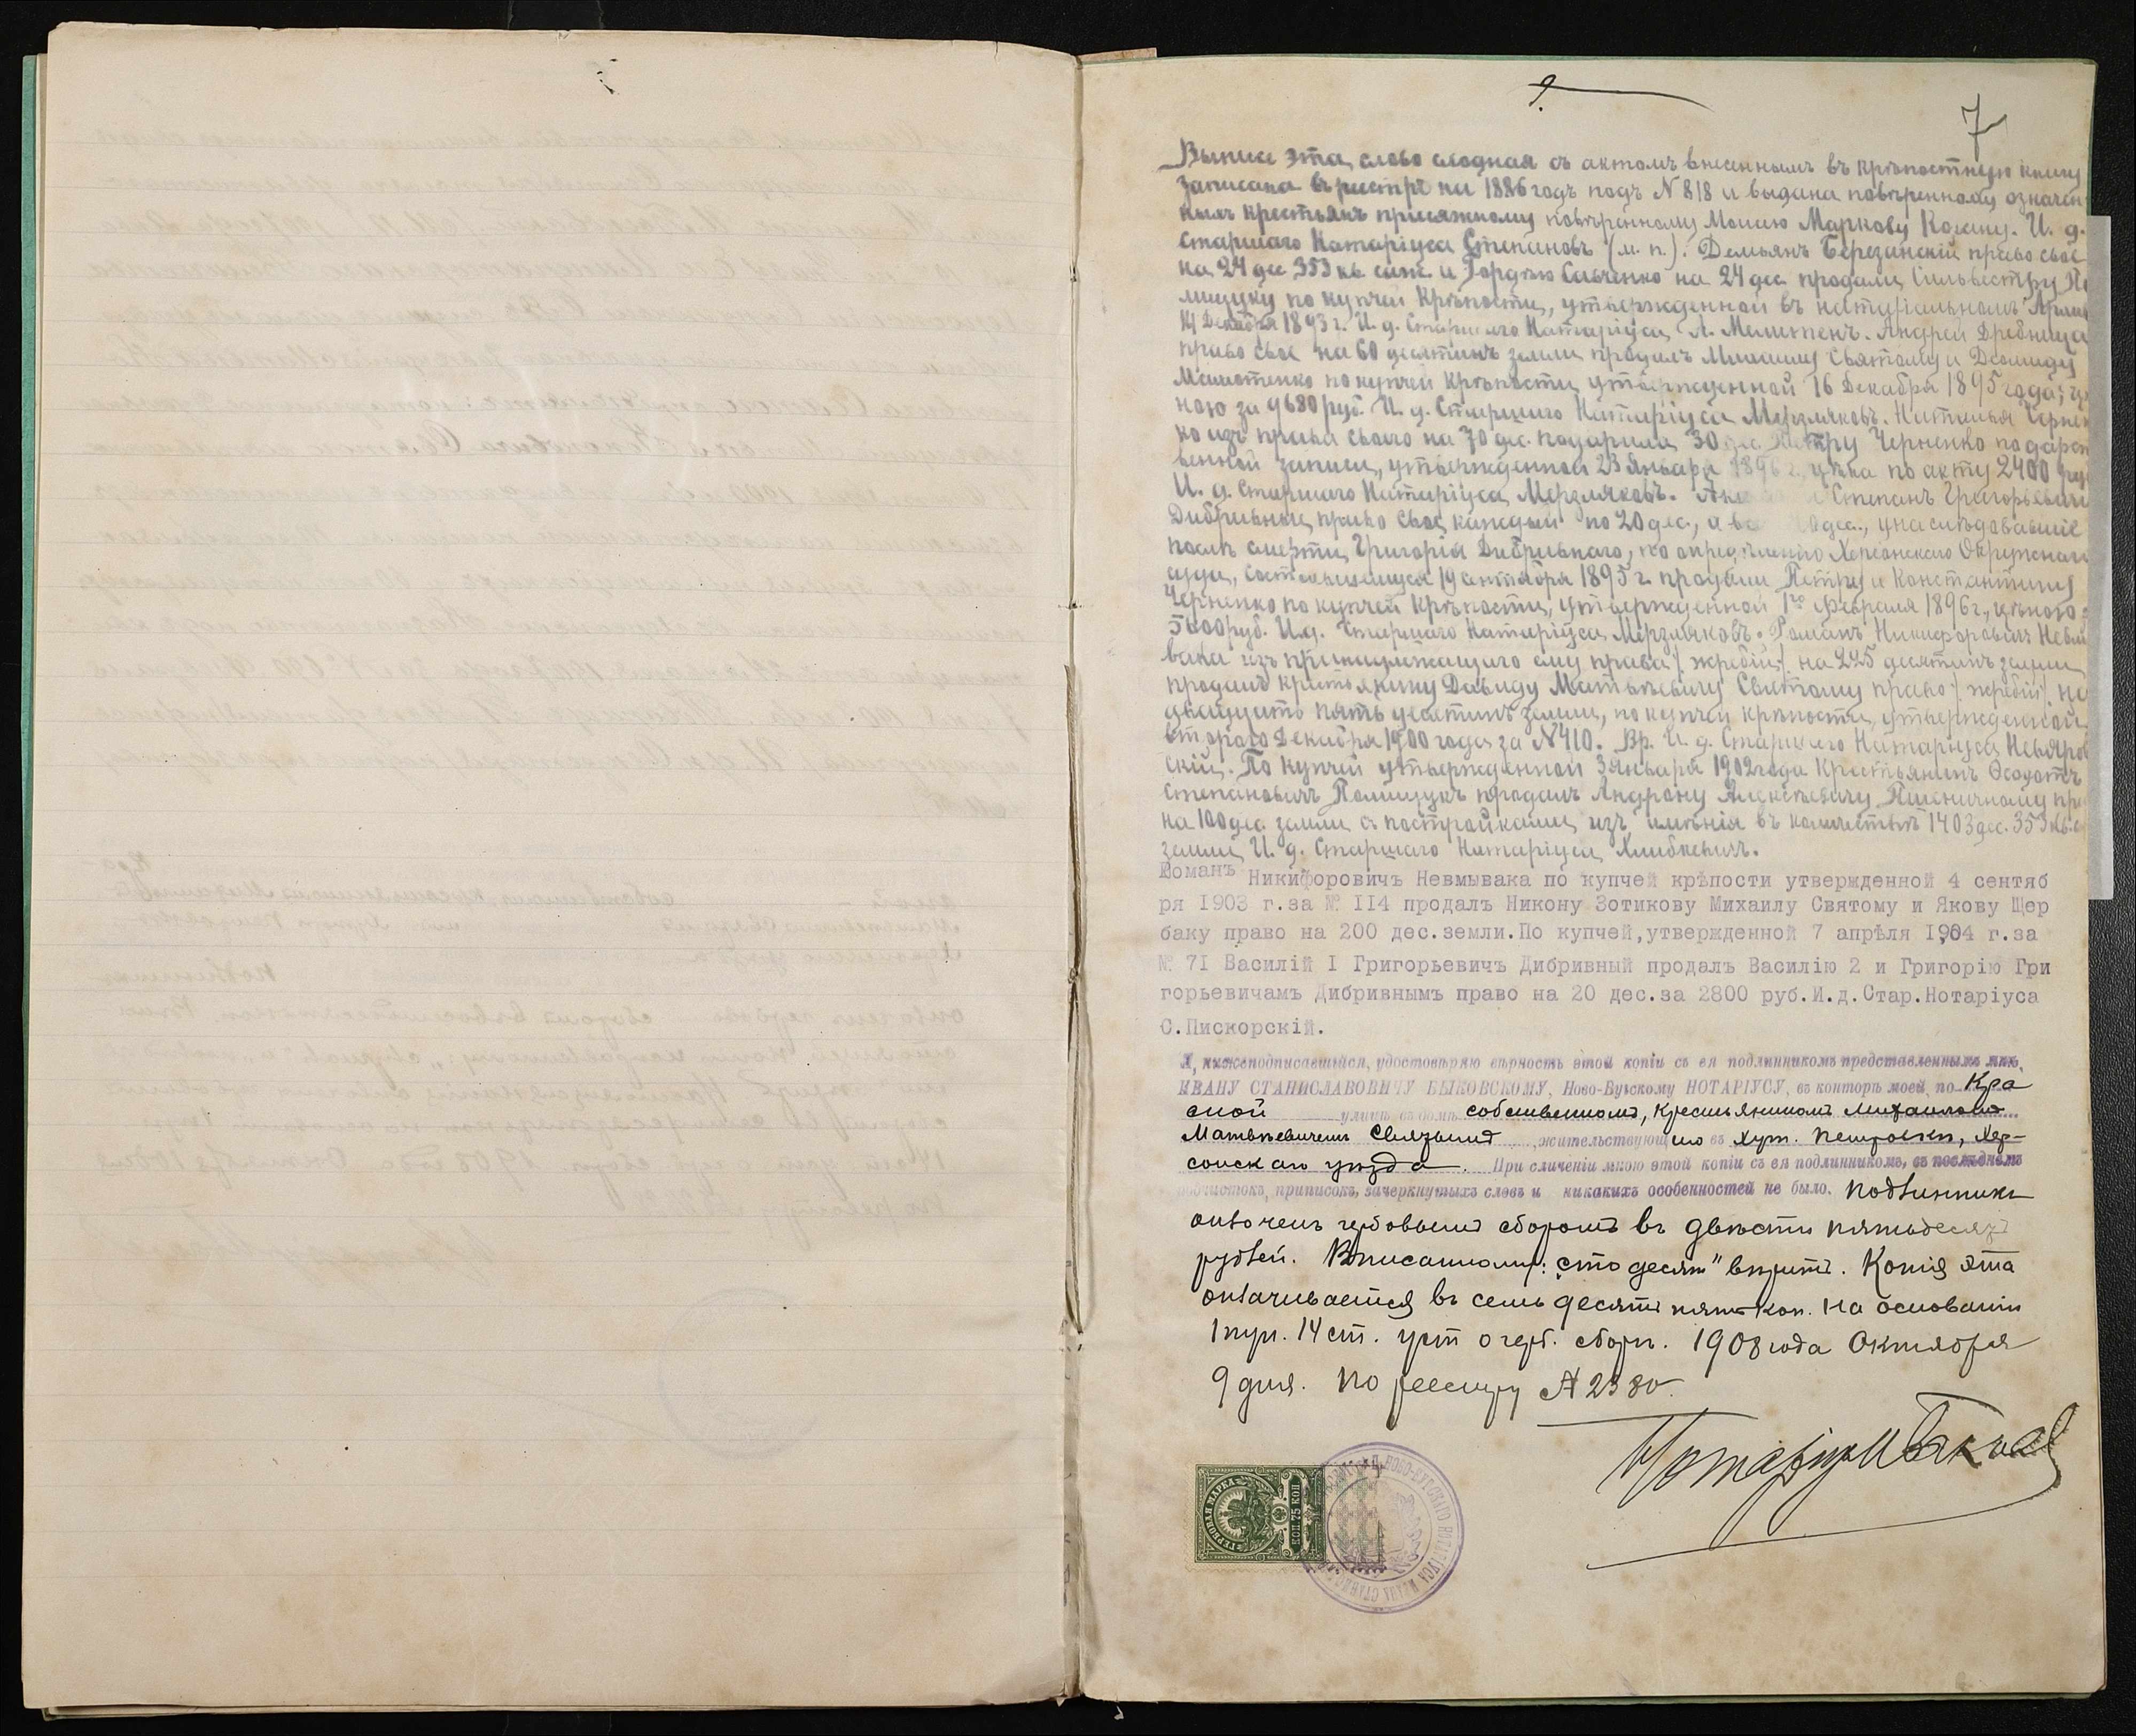 7
Выпись эта, слово сходная съ актомъ внесеннымъ въ крѣпостную книгу
записана въ реестрѣ на 1886 годъ подъ N 818 и выдана повѣренному означен
ныхъ крестьянъ присяжному повѣренному Моисею Маркову Когану. И. д.
Старшаго Нотаріуса Степановъ (м. п.). Демьянъ Березанскій право свое
на 24 дес 353 кв. саж. и Гордѣю Савченко на 24 дес продали Сильвестру По
лищуку по купчей крѣпости, утвержденной въ нотаріальномъ Архив
14 Декабря 1893 г. И. д. Старшаго Нотаріуса А. Андрей
право свое на 60 десятинъ земли продалъ Михаилу Святому и Деомиду
по купчей крѣпости, утвержденной 16 Декабря 1895 года, цѣ
ною за 9680 руб. И. д. Старшаго Нотаріуса Мерзляковъ. Наталья Чернен
ко изъ права своего на 70 дес. подарила 30 дес Петру Черненко по дарст
венной записи, утвержденной 23 Января 1896 г. цѣна по акту 2400 руб
И. д. Старшаго Нотаріуса Мерзляковъ. Степанъ Григорьевичи
Дибривные, право свое каждый по 20 дес., а дес., унаслѣдовавшіе
послѣ смерти Григорія Дибривнаго, по опредѣленію Херсонскаго Окружнаго
суда, состоявшемуся 19 сентября 1895 г. продали Петру и Константину
Черненко по купчей крѣпости, утвержденной 1го Февраля 1896 г., цѣною
5600 руб. И. д. Старшаго Нотаріуса Мерзляковъ. Романъ Никифоровичъ Невмы
вака изъ принадлежащаго ему права /жребій/ на 225 десятинъ земли
продалъ крестьянину Давиду Матвѣевичу Святому право /жребій/ на
двадцать пять десятинъ земли, по купчей крѣпости, утвержденной
второго Декабря 1900 года за N 410. Вр. И. д. Старшаго Нотаріуса Невяров
скій. По купчей утвержденной 3 Января 1902 года крестьянинъ Ѳеодотъ
Степановичъ Полищукъ продалъ Андрону Алексѣевичу Пшеничному пра
на 100 дес. земли съ постройками, изъ имѣнія въ количествѣ 1403 дес. 353 кв. с
земли, И. д. Старшаго Нотаріуса Хлибкевичъ.
Романъ Никифоровичъ Невмывака по купчей крѣпости утвержденной 4 сентяб
ря 1903 г. за № 114 продалъ Никону Зотикову Михаилу Святому и Якову Щер
баку право на 200 дес. земли. По купчей, утвержденной 7 апрѣля 1904 г. за
№ 71 Василій I Григорьевичъ Дибривный продалъ Василію 2 и Григорію Гри
горьевичамъ Дибривнымъ право на 20 дес. за 2800 руб. И. д. Стар. Нотаріуса
С. Пискорскій.
Я, нижеподписавшійся, удостовѣряю вѣрность этой копіи съ ея подлинникомъ представленнымъ мнѣ,
ИВАНУ СТАНИСЛАВОВИЧУ БЫКОВСКОМУ, Ново-Бугскому НОТАРІУСУ, въ конторѣ моей, по Кра
сной улицѣ, въ домѣ собственномъ, крестьяниномъ Михаиломъ
Матвѣевичемъ Святымъ, жительствующимъ въ хут. Петровкѣ, Хер-
сонскаго уѣзда. При сличеніи мною этой копіи съ ея подлинникомъ, въ послѣднемъ
подчистокъ, приписокъ, зачеркнутыхъ словъ и никакихъ особенностей не было. Подлинникъ
оплоченъ гербовымъ сборомъ въ двѣсти пятьдесятъ
рублей. Вписанному: "сто десят" вѣрить. Копія эта
оплачивается въ семьдесятъ пять коп. на основаніи
1 пун. 14 ст. уст о герб. сборѣ. 1908 года Октября
9 дня. По реестру № 2380.
Нотаріусъ И Быковс
ГЕРБОВАЯ МАРКА
КОП 75 КОП